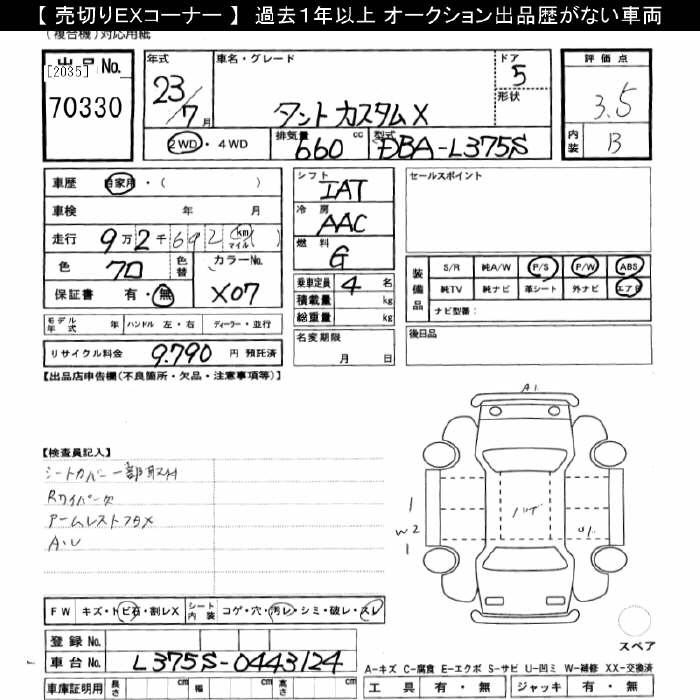 【 売切りEXコーナー 】 過去1年以上 オークション出品歴がない車両
(複合機)対応用紙
出品No.
[2035]
70330
年式
23/7月
車名・グレード
タント カスタム X
ドア
5
形状
評価点
3.5
内装
B
2WD・4WD
排気量
660 cc
型式
DBA-L375S
車歴 自家用・( )
車検 年 月
走行 9万2千692 km マイル ( )
色 クロ
色替
カラーNo.
X07
保証書 有・無
モデル年式 年
ハンドル 左・右
ディーラー・並行
リサイクル料金 9.790 円 預託済
シフト
IAT
冷房
AAC
燃料
G
乗車定員 4 名
積載量 kg
総重量 kg
名変期限
月 日
セールスポイント
装備品
S/R 純A/W P/S P/W ABS
純TV 純ナビ 革シート 外ナビ エアB
ナビ型番:
後日品
【出品店申告欄(不良箇所・欠品・注意事項等)】
【検査員記入】
シートカバー一部取付
Rワイパー欠
アームレストフタX
A・U
A1
1
W2
1
U1
FW キズ・トビ石・割レX
シート内装 コゲ・穴・汚レ・シミ・破レ・スレ
登録No.
車台No. L375S-0443124
車庫証明用 長さ cm 幅 cm 高さ cm
スペア
A-キズ C-腐食 E-エクボ S-サビ U-凹ミ W-補修 XX-交換済
工具 有・無 ジャッキ 有・無